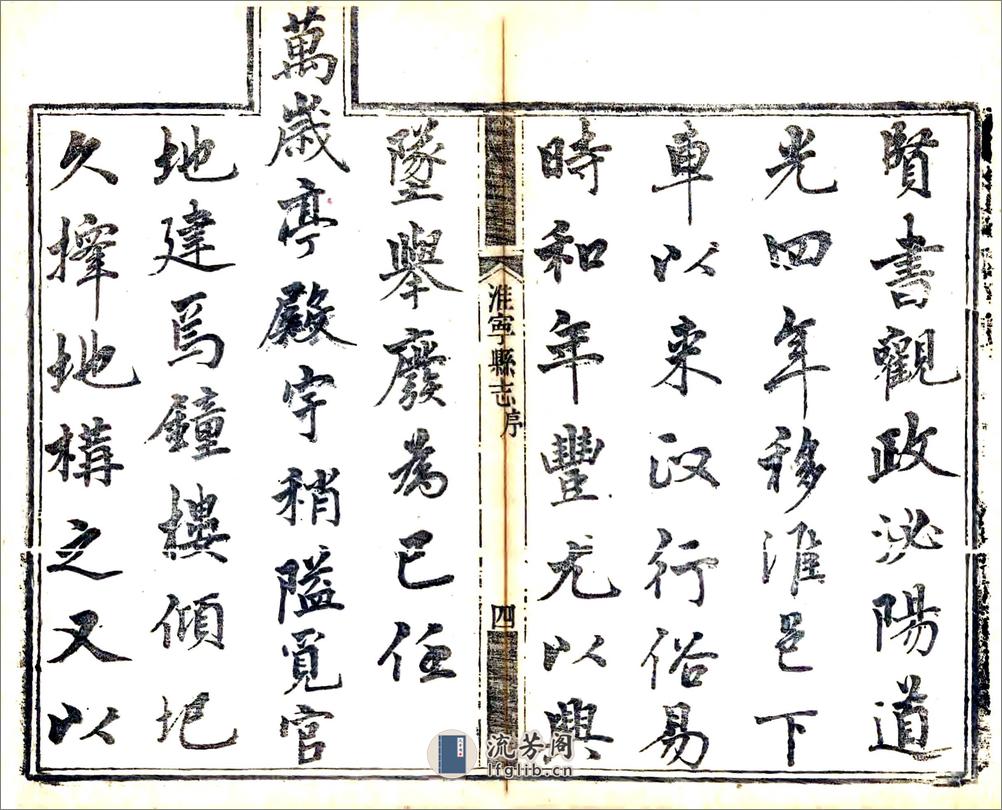 賢書觀政泌陽道
光四年移淮邑下
車以來政行俗易
時和年豐尤以興
淮寧縣志
序
四
墜舉廢為己任
萬歲亭殿宇稍隘覓官
地建焉鐘樓傾圮
久擇地構之又以
流芳阁
lfglib.cn